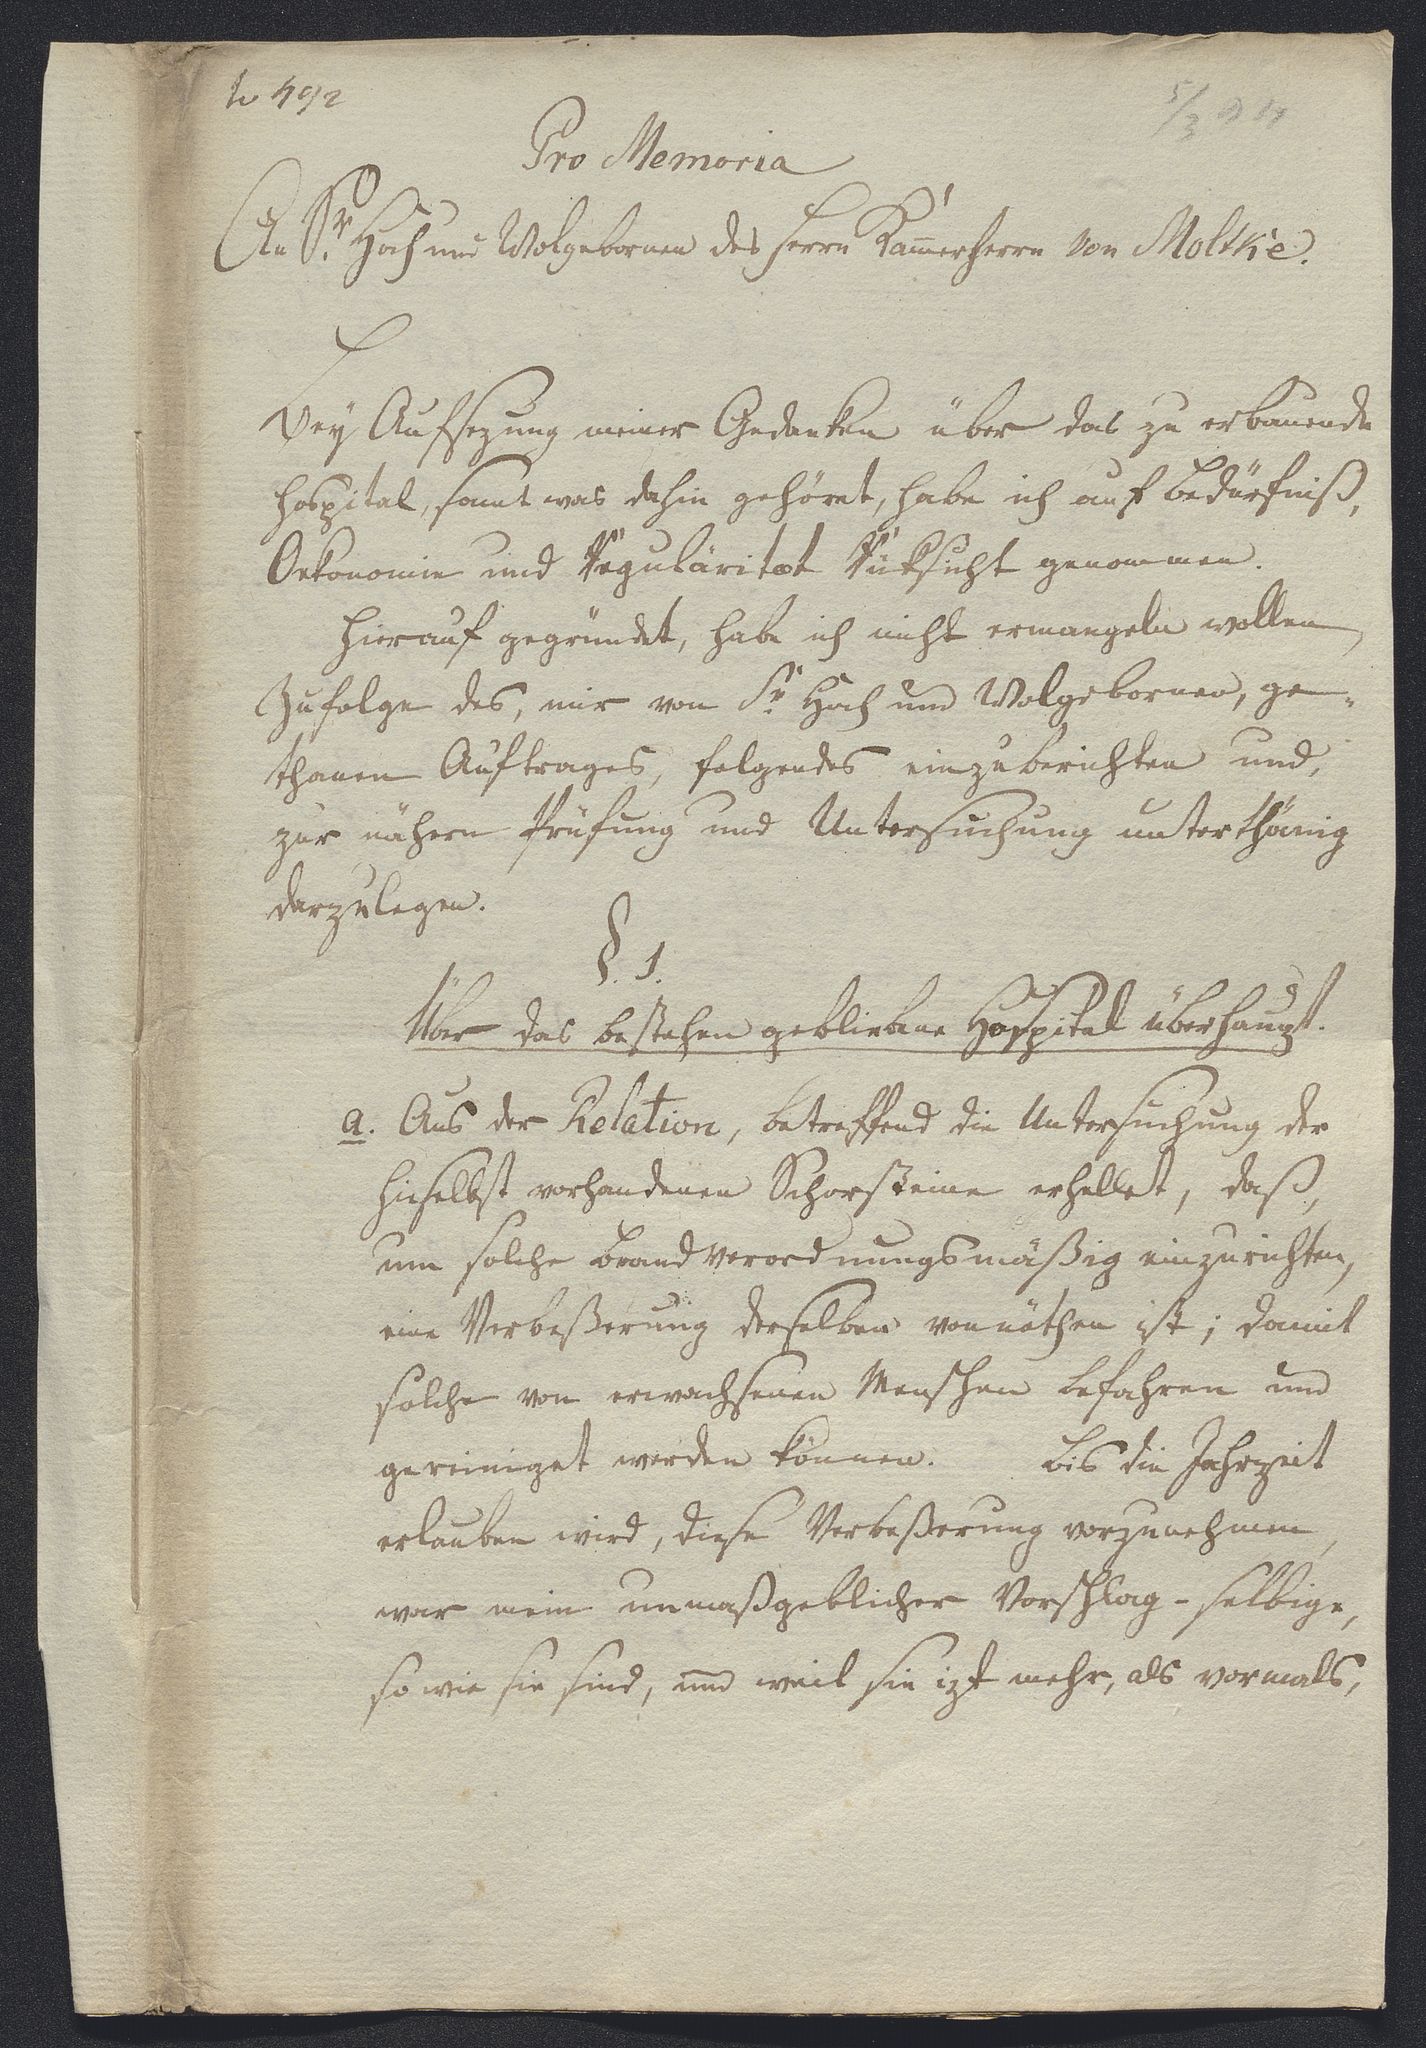 Pro Memoria
An Sr. Hoch und Wolgebornen des Herrn Kam̄erherrn von Moltke.
Bey Aufsezung meiner Gedanken über das zu erbauende
Hospital, samt was dahin gehöret, habe ich auf Bedürfniß,
Oekonomie und Reguläritæt Rüksicht genommen.
Hierauf gegründet, habe ich nicht ermangeln wollen,
Zufolge des, mir von Sr. Hoch und Wolgebornen, ge-
thanen Auftrages, folgendes einzuberichten und,
zur nähern Prüfung und Untersuchung unterthänig
darzulegen.
§. 1.
Über das bestehen gebliebene Hospital überhaupt.
a. Aus der Relation, betreffend die Untersuchung der
hieselbst vorhandenen Schorsteine erhellet, daß,
um solche brandverordnungsmäßig einzurichten,
eine Verbeßerung derselben vonnöthen ist; damit
solche von erwachsenen Menschen befahren und
gereiniget werden können. Bis die Jahrzeit
erlauben wird, diese Verbeßerung vorzunehmen,
war mein unmaßgeblicher Vorschlag - selbige,
so wie sie sind, und weil sie izt mehr, als vormals,